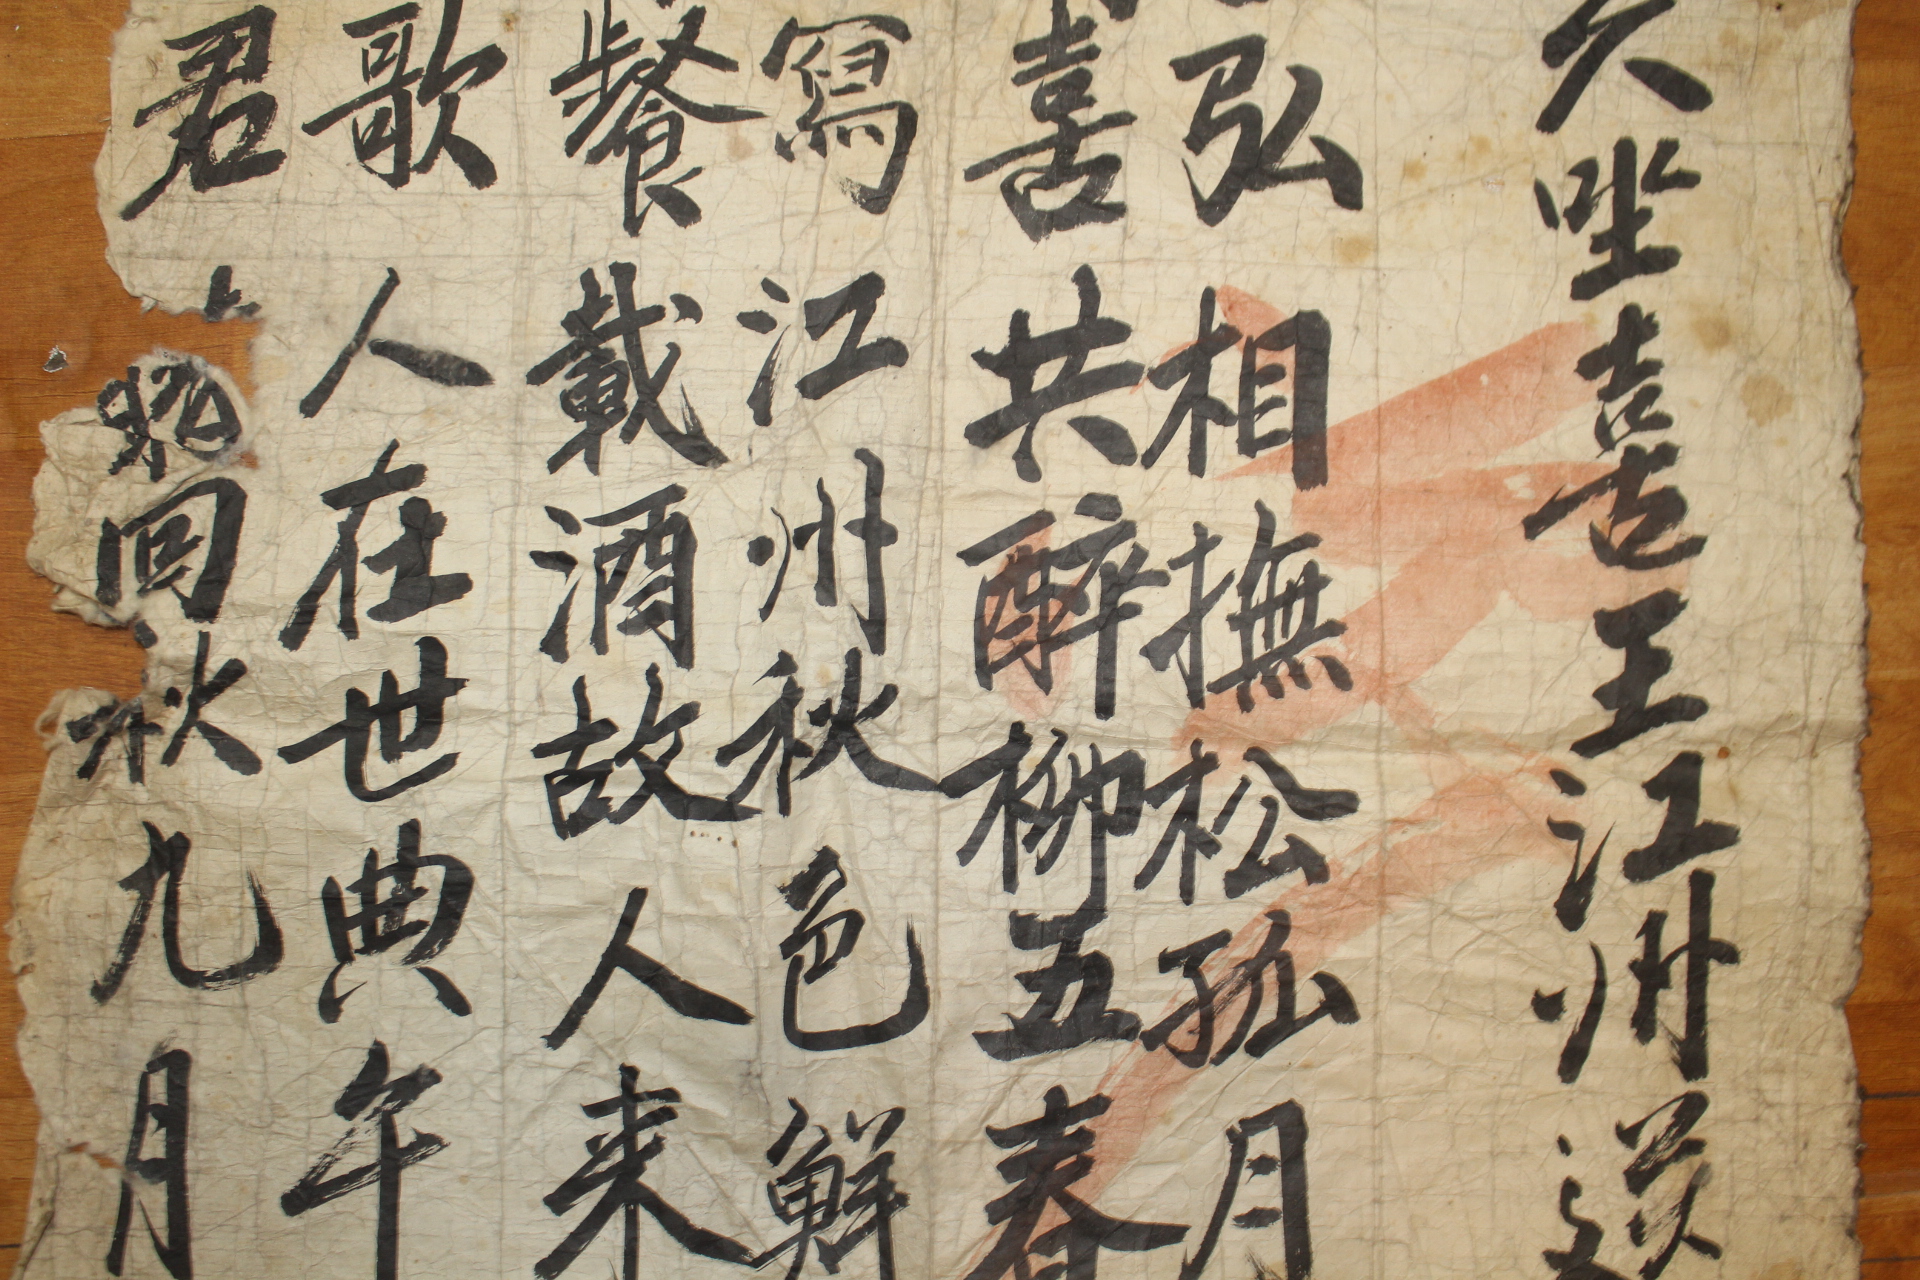 久坐喜王江州送
弘相撫松孤月
喜共醉柳五春
寫江州秋色鮮
餐載酒故人来
歌人在世典午
君 晚回秋九月